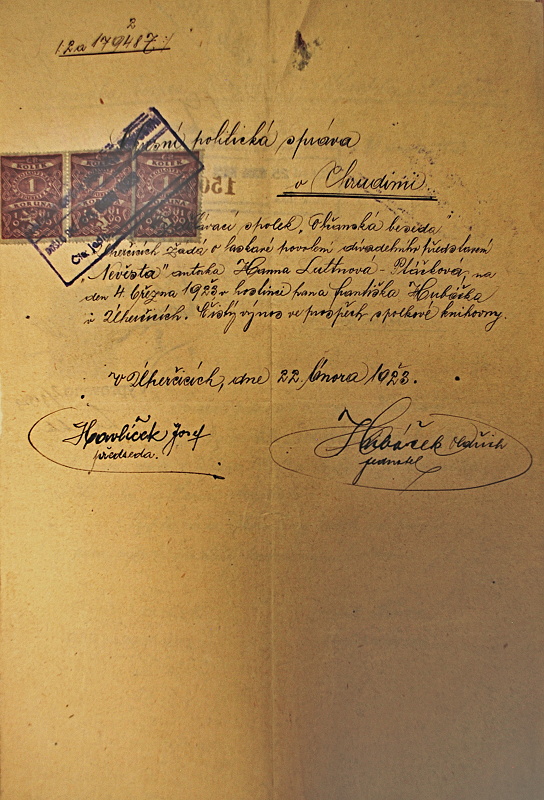 2
12a 179417
politická správa
v Chrudimi
KOLEK KOLEK KOLEK
1 1 1
KORUNA KORUNA KORUNA
150
spolek „Občanská beseda
žádá o laskavé povolení divadelního představení
„Nevěsta" autorka Hanna
den 4. března 1923 v hostinci pana Františka Hubáčka
v Úherčicích. Čistý výnos ve prospěch spolkové knihovny.
V Úherčicích, dne 22. února 1923.
Havlíček Josef
předseda.
Hubáček Oldřich
jednatel